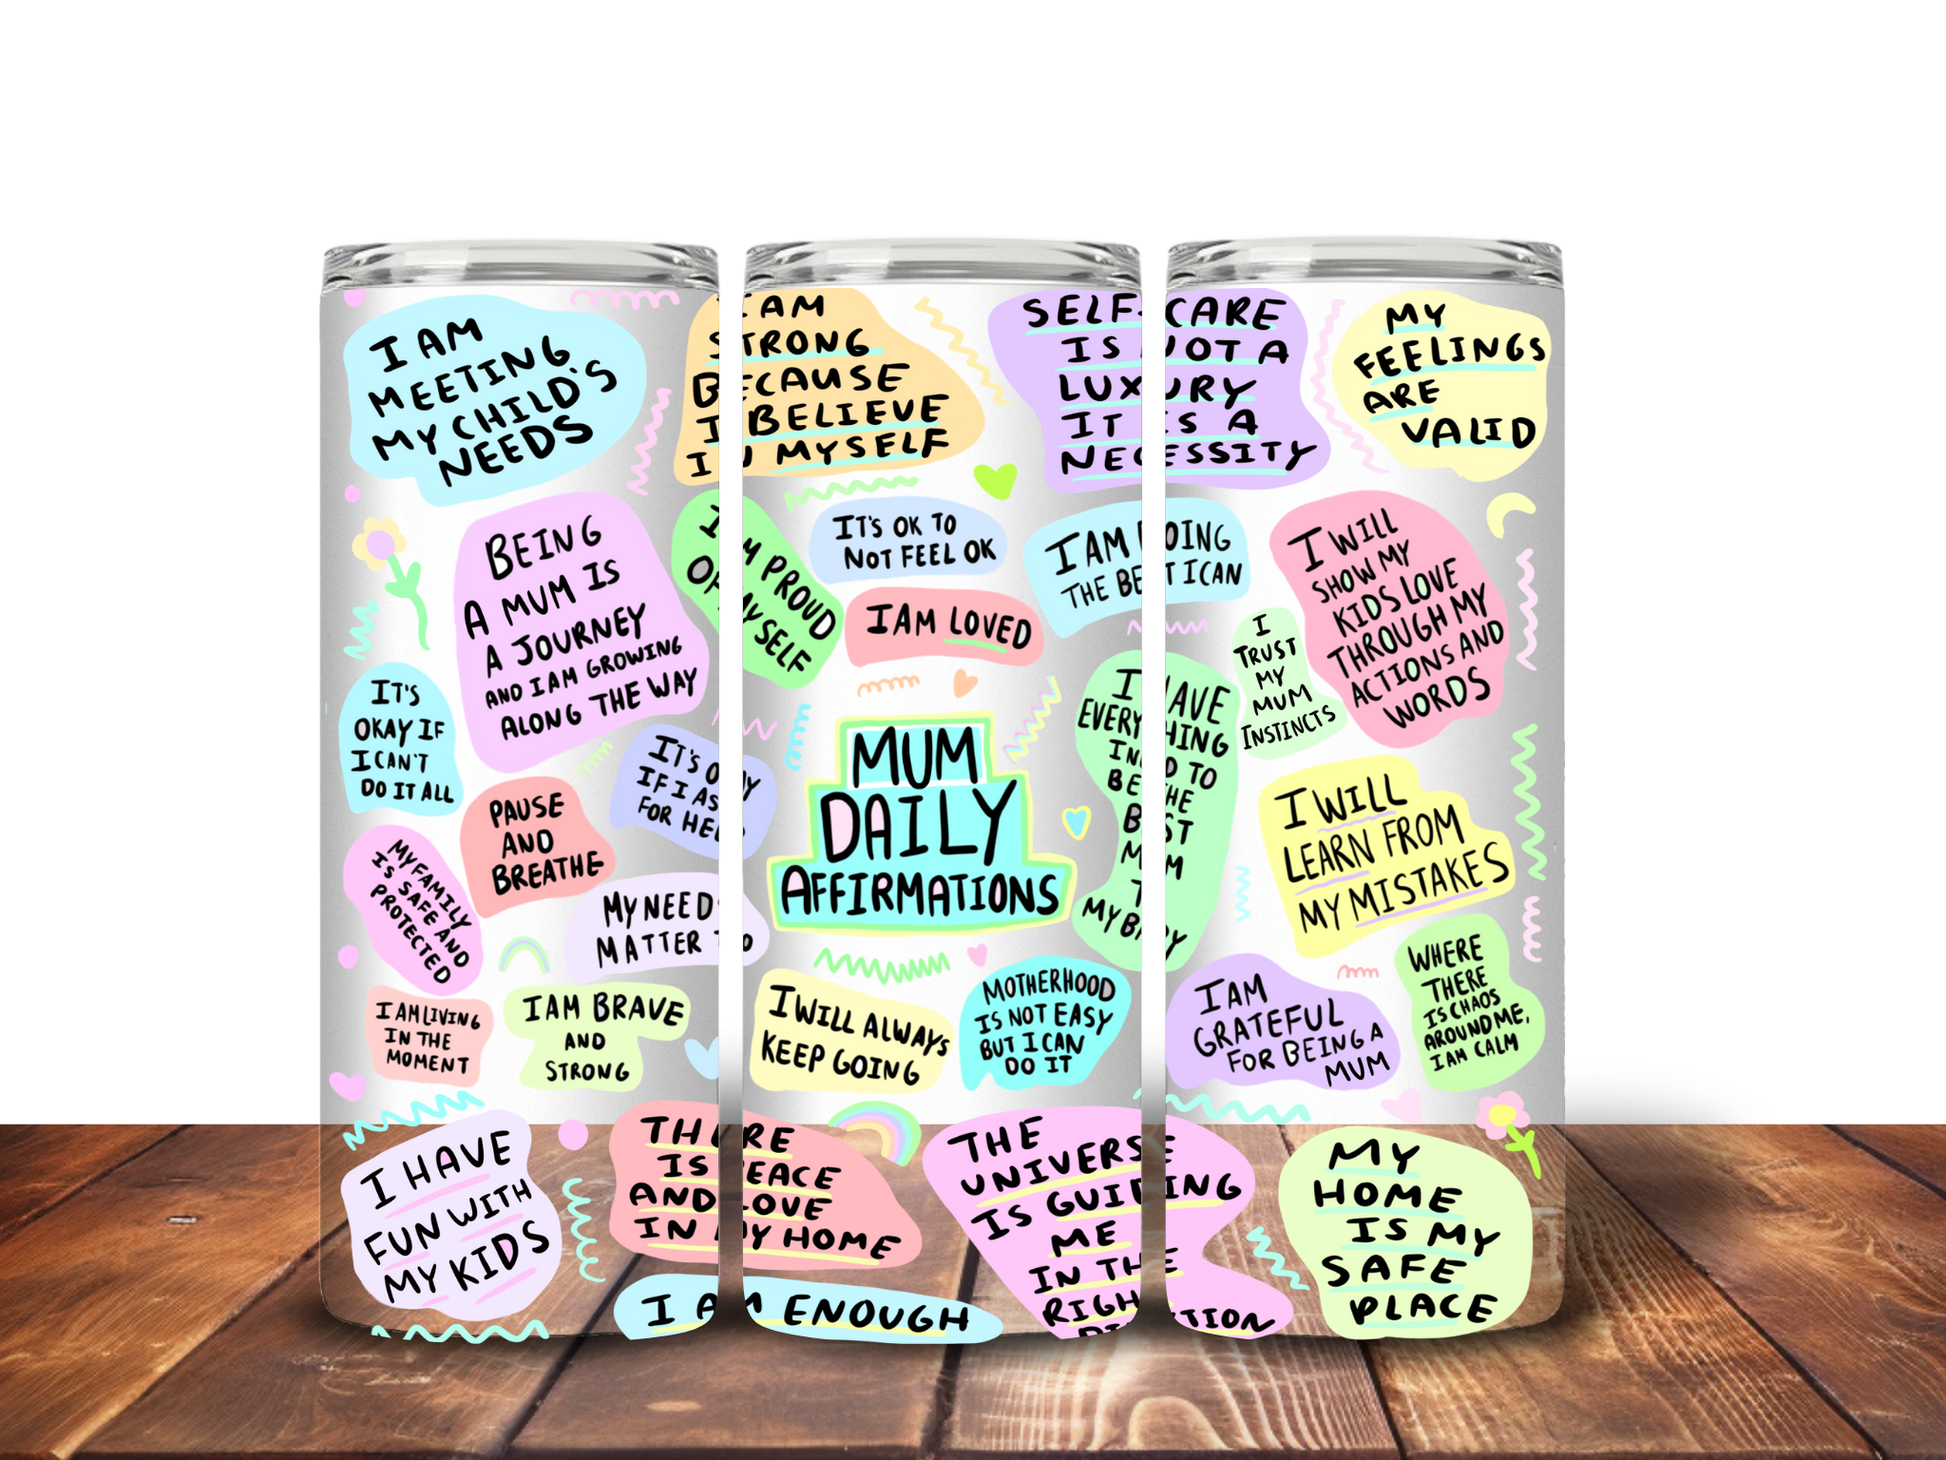 I AM
MEETING
MY CHILD'S
NEEDS
I AM
STRONG
BECAUSE
I BELIEVE
IN MYSELF
SELF-CARE
IS NOT A
LUXURY
IT IS A
NECESSITY
MY
FEELINGS
ARE
VALID
BEING
A MUM IS
A JOURNEY
AND I AM GROWING
ALONG THE WAY
I AM PROUD
OF MYSELF
IT'S OK TO
NOT FEEL OK
I AM LOVED
I AM DOING
THE BEST I CAN
I WILL
SHOW MY
KIDS LOVE
THROUGH MY
ACTIONS AND
WORDS
I
TRUST
MY
MUM
INSTINCTS
IT'S
OKAY IF
I CAN'T
DO IT ALL
IT'S OKAY
IF I ASK
FOR HELP
PAUSE
AND
BREATHE
MUM
DAILY
AFFIRMATIONS
I HAVE
EVERYTHING
I NEED TO
BE THE
BEST
MUM
TO
MY BABY
I WILL
LEARN FROM
MY MISTAKES
MY FAMILY
IS SAFE AND
PROTECTED
MY NEEDS
MATTER TOO
I AM LIVING
IN THE
MOMENT
I AM BRAVE
AND
STRONG
I WILL ALWAYS
KEEP GOING
MOTHERHOOD
IS NOT EASY
BUT I CAN
DO IT
I AM
GRATEFUL
FOR BEING A
MUM
WHERE
THERE
IS CHAOS
AROUND ME,
I AM CALM
I HAVE
FUN WITH
MY KIDS
THERE
IS PEACE
AND LOVE
IN MY HOME
I AM ENOUGH
THE
UNIVERSE
IS GUIDING
ME
IN THE
RIGHT
DIRECTION
MY
HOME
IS MY
SAFE
PLACE